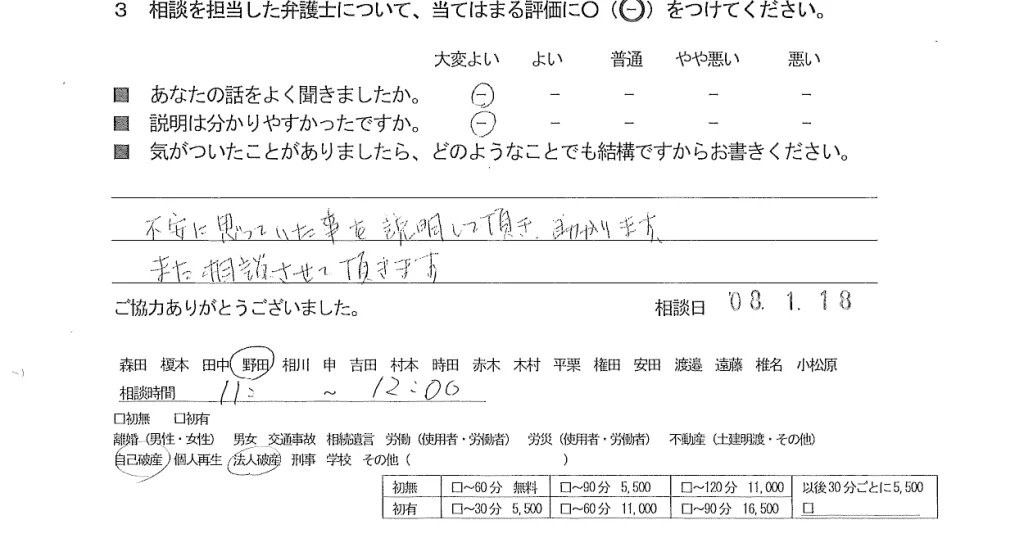 3 相談を担当した弁護士について、当てはまる評価に○(㊀)をつけてください。
大変よい よい 普通 やや悪い 悪い
■ あなたの話をよく聞きましたか。 － － － － －
■ 説明は分かりやすかったですか。 － － － － －
■ 気がついたことがありましたら、どのようなことでも結構ですからお書きください。
不安に思っていた事を説明して頂き、助かります、
また相談させて頂きます
ご協力ありがとうございました。 相談日 '08. 1. 18
森田 榎本 田中 野田 相川 申 吉田 村本 時田 赤木 木村 平栗 権田 安田 渡邉 遠藤 椎名 小松原
相談時間 11: ～ 12:00
□初無 □初有
離婚(男性・女性) 男女 交通事故 相続遺言 労働(使用者・労働者) 労災(使用者・労働者) 不動産(土建明渡・その他)
自己破産 個人再生 法人破産 刑事 学校 その他( )
初無 □～60分 無料 □～90分 5,500 □～120分 11,000 以後30分ごとに5,500
初有 □～30分 5,500 □～60分 11,000 □～90分 16,500 □